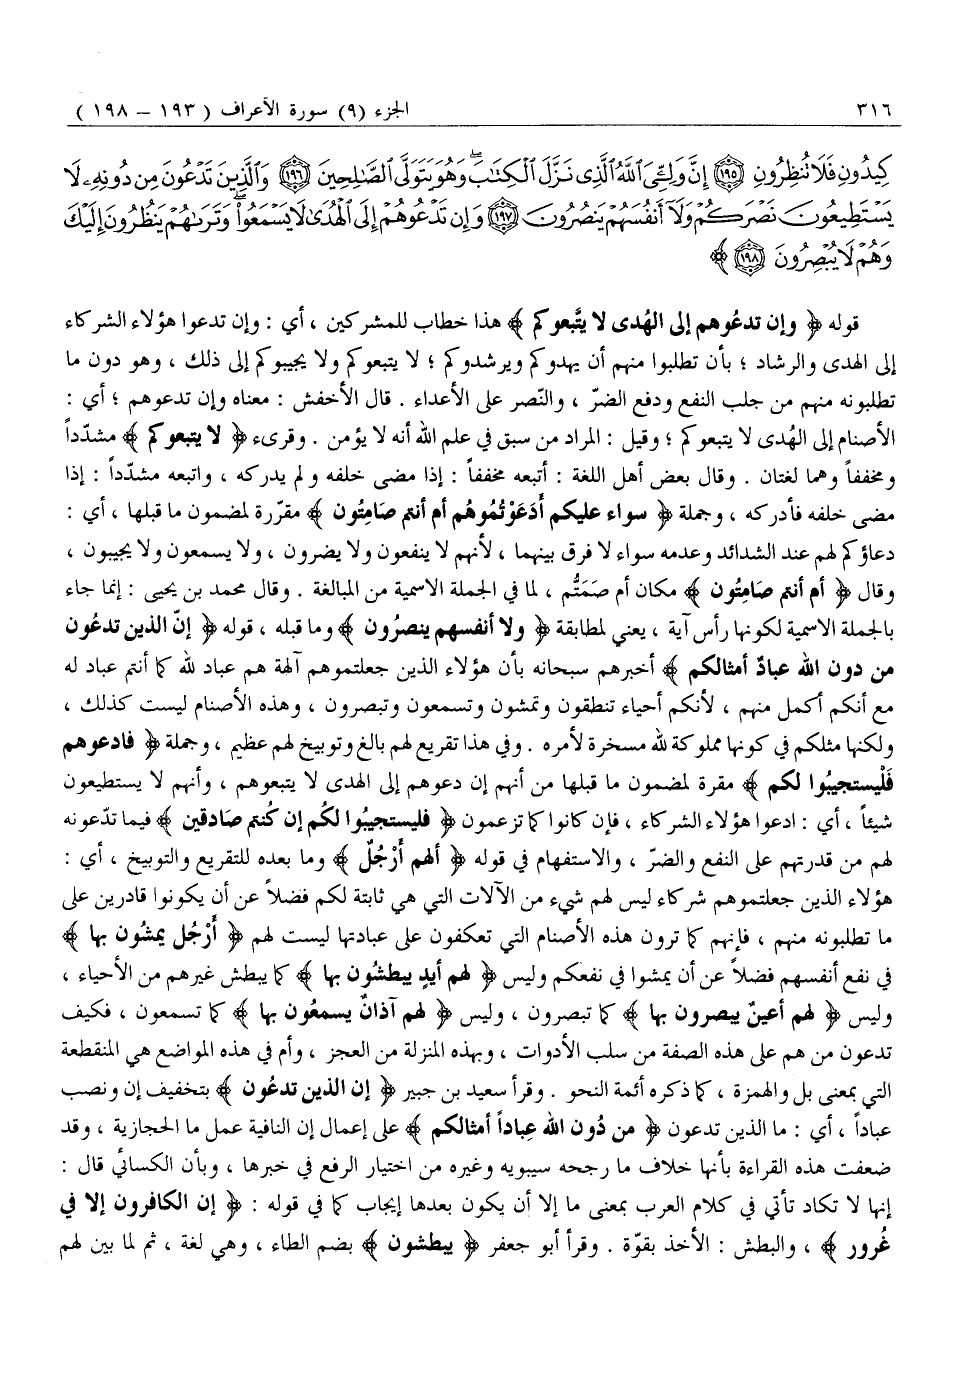 ٣١٦
الجزء (٩) سورة الأعراف ( ١٩٣ - ١٩٨ )
كِيدُونِ فَلَا تُنظِرُونِ ١٩٥ إِنَّ وَلِـِّىَ ٱللَّهُ ٱلَّذِى نَزَّلَ ٱلْكِتَٰبَ ۖ وَهُوَ يَتَوَلَّى ٱلصَّٰلِحِينَ ١٩٦ وَٱلَّذِينَ تَدْعُونَ مِن دُونِهِۦ لَا
يَسْتَطِيعُونَ نَصْرَكُمْ وَلَآ أَنفُسَهُمْ يَنصُرُونَ ١٩٧ وَإِن تَدْعُوهُمْ إِلَى ٱلْهُدَىٰ لَا يَسْمَعُوا۟ ۖ وَتَرَىٰهُمْ يَنظُرُونَ إِلَيْكَ
وَهُمْ لَا يُبْصِرُونَ ١٩٨ ﴾
قوله ﴿ وإن تدعُوهم إلى الهُدى لا يتَّبعوكم ﴾ هذا خطاب للمشركين ، أي : وإن تدعوا هؤلاء الشركاء
إلى الهدى والرشاد ؛ بأن تطلبوا منهم أن يهدوكم ويرشدوكم ؛ لا يتبعوكم ولا يجيبوكم إلى ذلك ، وهو دون ما
تطلبونه منهم من جلب النفع ودفع الضرّ ، والنّصر على الأعداء . قال الأخفش : معناه وإن تدعوهم ؛ أي :
الأصنام إلى الهُدى لا يتبعوكم ؛ وقيل : المراد من سبق في علم الله أنه لا يؤمن . وقرىء ﴿ لا يتبعوكم ﴾ مشدّداً
ومخففاً وهما لغتان . وقال بعض أهل اللغة : أتبعه مخففاً : إذا مضى خلفه ولم يدركه ، واتبعه مشدّداً : إذا
مضى خلفه فأدركه ، وجملة ﴿ سواء عليكم أَدَعَوْتُمُوهُم أم أنتم صَامِتُون ﴾ مقرّرة لمضمون ما قبلها ، أي :
دعاؤكم لهم عند الشدائد وعدمه سواء لا فرق بينهما ، لأنهم لا ينفعون ولا يضرون ، ولا يسمعون ولا يجيبون ،
وقال ﴿ أم أنتم صَامِتُون ﴾ مكان أم صَمَتُّم ، لما في الجملة الاسمية من المبالغة . وقال محمد بن يحيى : إنما جاء
بالجملة الاسمية لكونها رأس آية ، يعني لمطابقة ﴿ ولا أنفسهم ينصرُون ﴾ وما قبله ، قوله ﴿ إنّ الذين تدعُون
من دون الله عبادٌ أمثالكم ﴾ أخبرهم سبحانه بأن هؤلاء الذين جعلتموهم آلهة هم عباد لله كما أنتم عباد له
مع أنكم أكمل منهم ، لأنكم أحياء تنطقون وتمشون وتسمعون وتبصرون ، وهذه الأصنام ليست كذلك ،
ولكنها مثلكم في كونها مملوكة لله مسخرة لأمره . وفي هذا تقريع لهم بالغ وتوبيخ لهم عظيم ، وجملة ﴿ فادعوهم
فَلْيستجيبُوا لكم ﴾ مقرة لمضمون ما قبلها من أنهم إن دعوهم إلى الهدى لا يتبعوهم ، وأنهم لا يستطيعون
شيئاً ، أي : ادعوا هؤلاء الشركاء ، فإن كانوا كما تزعمون ﴿ فليستجيبُوا لكُم إن كُنتم صَادقين ﴾ فيما تدّعونه
لهم من قدرتهم على النفع والضرّ ، والاستفهام في قوله ﴿ ألهم أَرْجُلٌ ﴾ وما بعده للتقريع والتوبيخ ، أي :
هؤلاء الذين جعلتموهم شركاء ليس لهم شيء من الآلات التي هي ثابتة لكم فضلاً عن أن يكونوا قادرين على
ما تطلبونه منهم ، فإنهم كما ترون هذه الأصنام التي تعكفون على عبادتها ليست لهم ﴿ أَرْجُل يمشُون بها ﴾
في نفع أنفسهم فضلاً عن أن يمشوا في نفعكم وليس ﴿ لهم أيدٍ يبطشُون بها ﴾ كما يبطش غيرهم من الأحياء ،
وليس ﴿ لهم أعينٌ يبصرون بها ﴾ كما تبصرون ، وليس ﴿ لهم آذانٌ يسمعُون بها ﴾ كما تسمعون ، فكيف
تدعون من هم على هذه الصفة من سلب الأدوات ، وبهذه المنزلة من العجز ، وأم في هذه المواضع هي المنقطعة
التي بمعنى بل والهمزة ، كما ذكره أئمة النحو . وقرأ سعيد بن جبير ﴿ إن الذين تدعُون ﴾ بتخفيف إن ونصب
عباداً ، أي : ما الذين تدعون ﴿ من دُون الله عِباداً أمثالكم ﴾ على إعمال إن النافية عمل ما الحجازية ، وقد
ضعفت هذه القراءة بأنها خلاف ما رجحه سيبويه وغيره من اختيار الرفع في خبرها ، وبأن الكسائي قال :
إنها لا تكاد تأتي في كلام العرب بمعنى ما إلا أن يكون بعدها إيجاب كما في قوله : ﴿ إن الكافرون إلا في
غُرور ﴾ ، والبطش : الأخذ بقوّة . وقرأ أبو جعفر ﴿ يبطشون ﴾ بضم الطاء ، وهي لغة ، ثم لما بين لهم